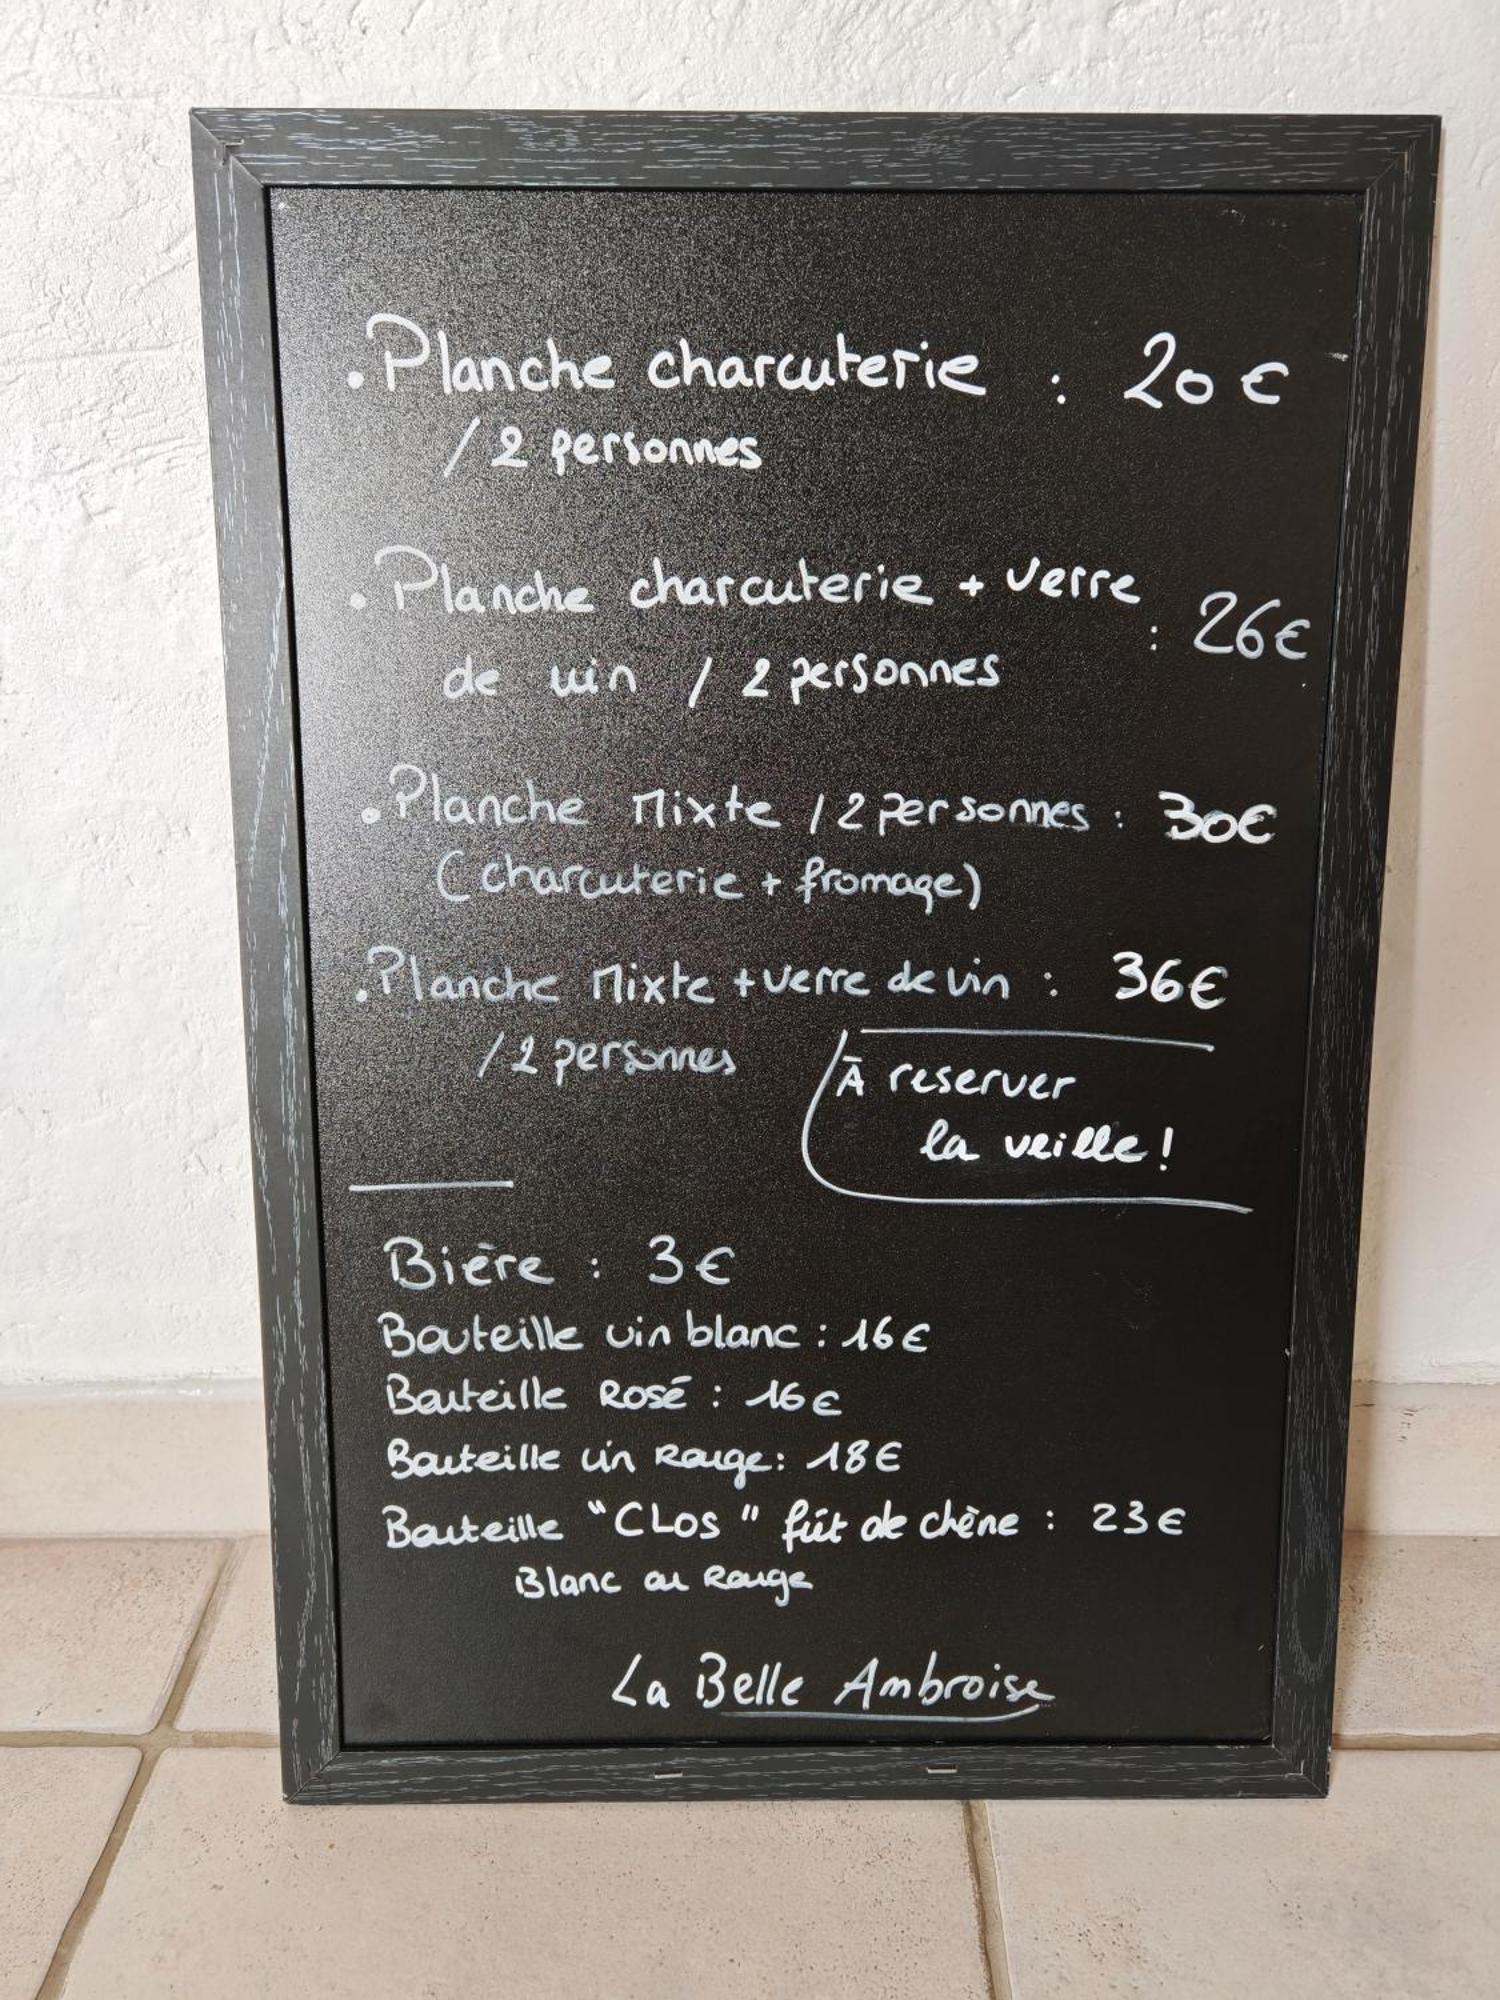 . Planche charcuterie : 20 €
/ 2 personnes
. Planche charcuterie + verre
: 26€
de vin / 2 personnes
. Planche Mixte / 2 personnes : 30€
(charcuterie + fromage)
. Planche Mixte + verre de vin : 36€
/ 2 personnes
À reserver
la veille !
Bière : 3€
Bouteille vin blanc : 16€
Bouteille Rosé : 16€
Bouteille vin Rouge : 18€
Bouteille "CLOS" fût de chêne : 23€
Blanc ou Rouge
La Belle Ambroise